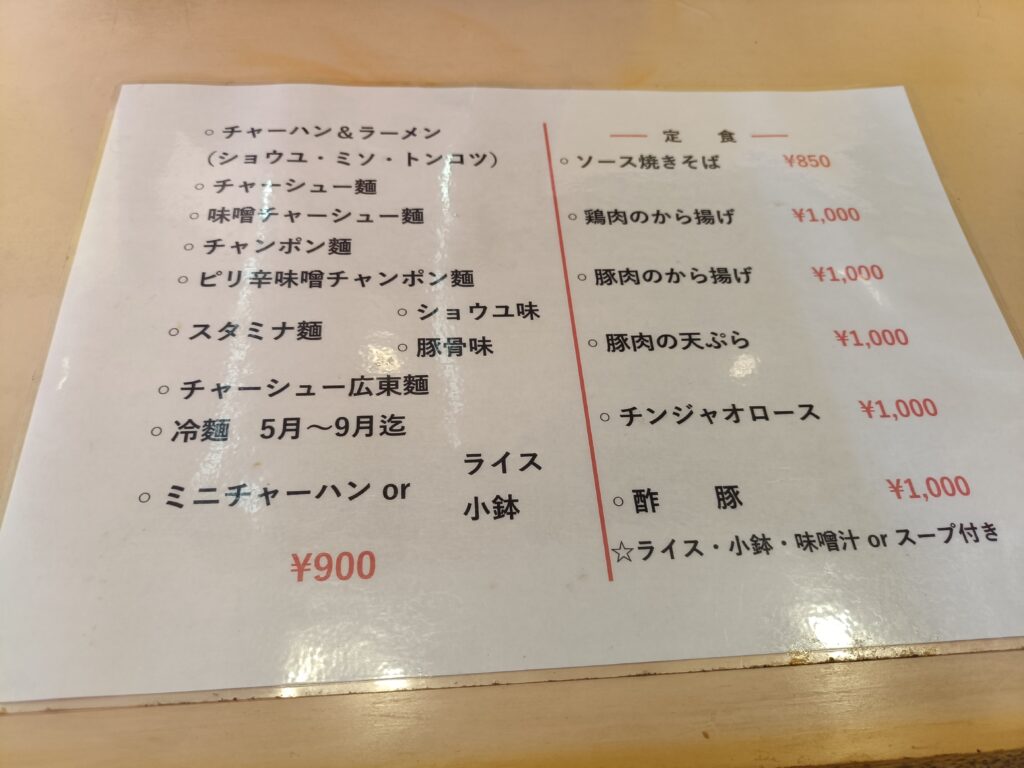 ○ チャーハン＆ラーメン
（ショウユ・ミソ・トンコツ）
○ チャーシュー麺
○ 味噌チャーシュー麺
○ チャンポン麺
○ ピリ辛味噌チャンポン麺
○ スタミナ麺
○ ショウユ味
○ 豚骨味
○ チャーシュー広東麺
○ 冷麺　5月～9月迄
○ ミニチャーハン or
ライス
小鉢
¥900
定　食
○ ソース焼きそば ¥850
○ 鶏肉のから揚げ ¥1,000
○ 豚肉のから揚げ ¥1,000
○ 豚肉の天ぷら ¥1,000
○ チンジャオロース ¥1,000
○ 酢　豚 ¥1,000
☆ライス・小鉢・味噌汁 or スープ付き